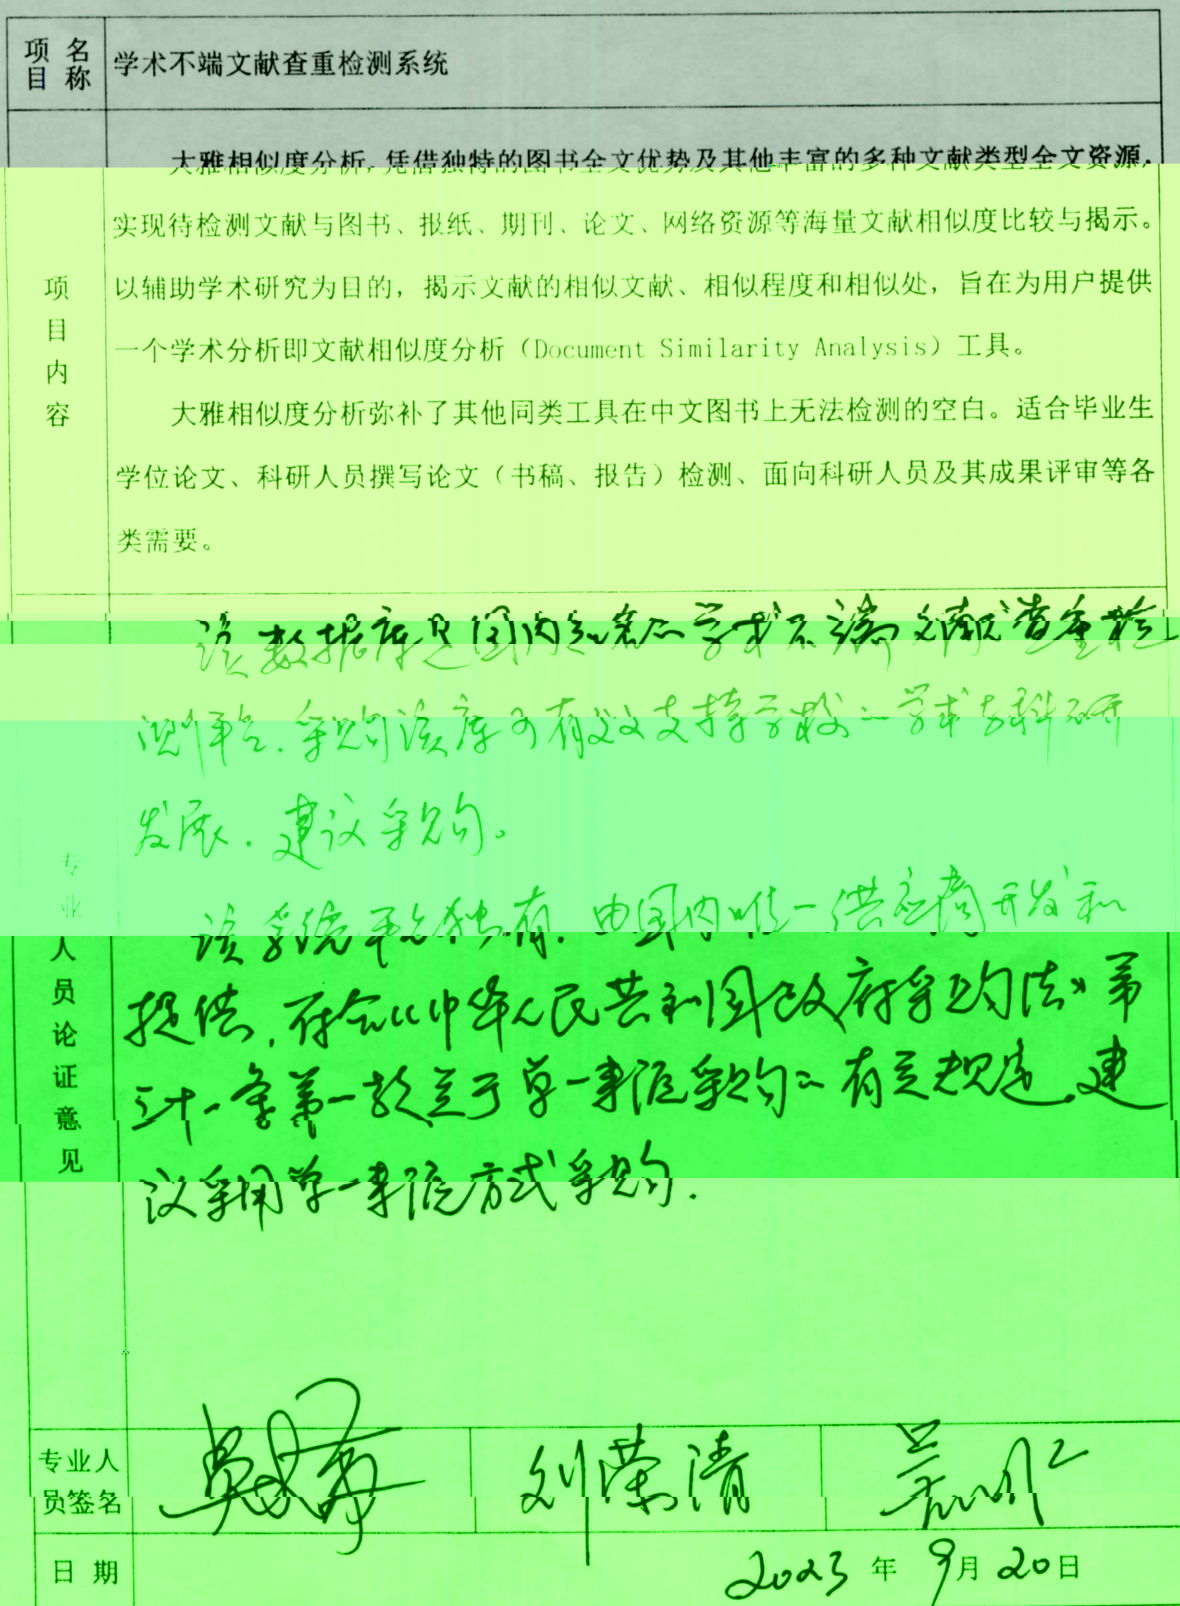 项目名称 学术不端文献查重检测系统
大雅相似度分析，凭借独特的图书全文优势及其他丰富的多种文献类型全文资源，
实现待检测文献与图书、报纸、期刊、论文、网络资源等海量文献相似度比较与揭示。
以辅助学术研究为目的，揭示文献的相似文献、相似程度和相似处，旨在为用户提供
一个学术分析即文献相似度分析（Document Similarity Analysis）工具。
项目内容
大雅相似度分析弥补了其他同类工具在中文图书上无法检测的空白。适合毕业生
学位论文、科研人员撰写论文（书稿、报告）检测、面向科研人员及其成果评审等各
类需要。
该数据库是国内知名的学术不端文献查重检
测平台，采购该库可有效支持学校的学术与科研
发展，建议采购。
该系统平台独有，由国内唯一供应商开发和
提供，符合《中华人民共和国政府采购法》第
三十一条第一款关于单一来源采购的有关规定，建
议采用单一来源方式采购.
专业人员论证意见
专业人员签名 刘荣清
日期 2023年9月20日